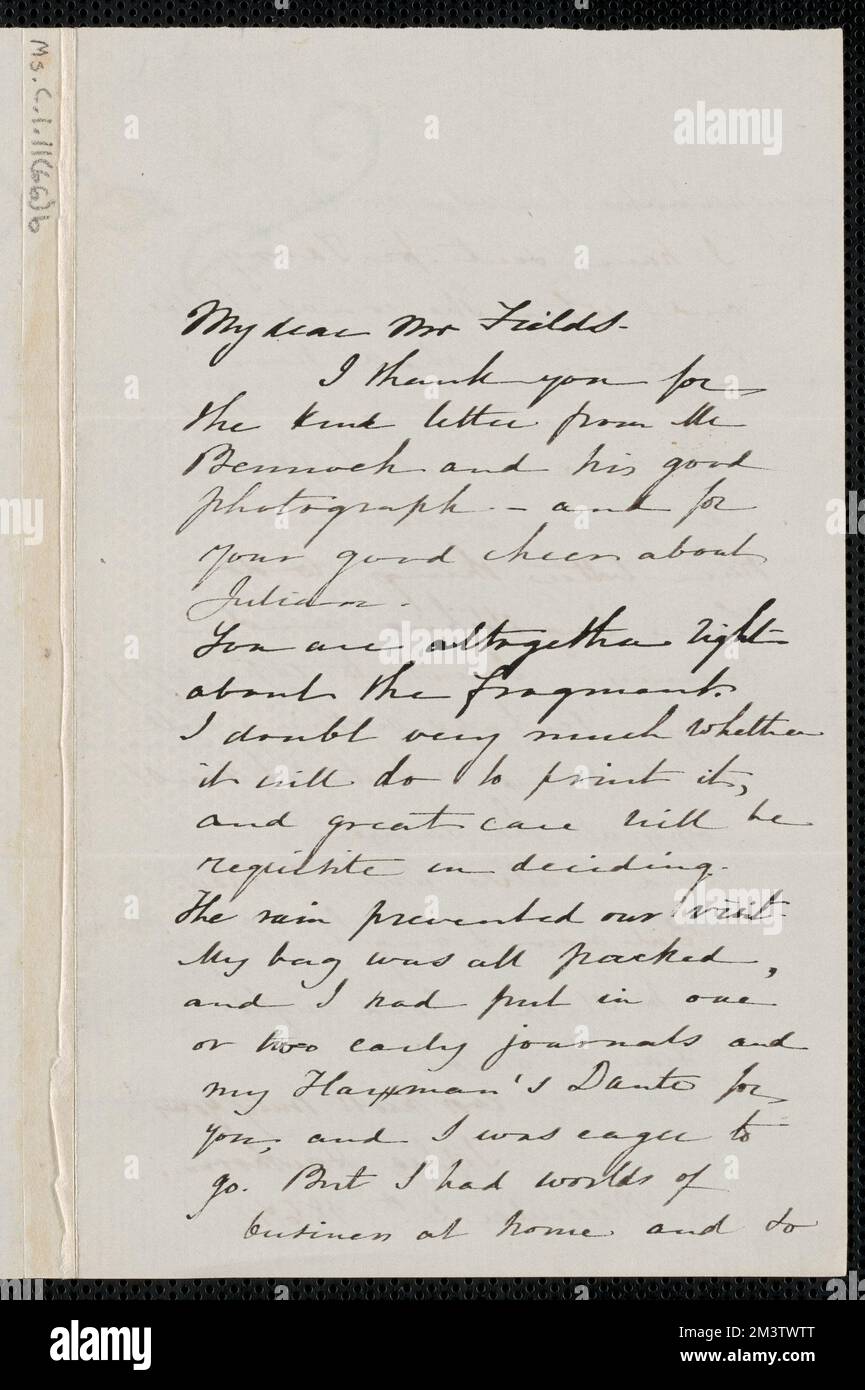 Ms. C.1.11(66)b
My dear Mr Fields-
I thank you for
the kind letter from Mr
Bennoch and his good
photograph - and for
your good cheer about
Julian.
You are altogether right
about the fragment.
I doubt very much whether
it will do to print it,
and great care will be
requisite in deciding.
The rain prevented our visit
My bag was all packed,
and I had put in one
or two early journals and
my Flaxman's Dante for
you, and I was eager to
go. But I had worlds of
business at home and so
alamy
alamy
Image ID: 2M3TWTT
www.alamy.com